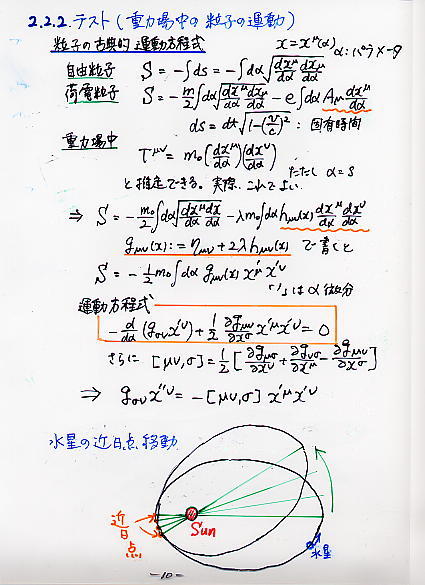 2.2.2. テスト (重力場中の粒子の運動)
粒子の古典的運動方程式 x = x^μ(α) α:パラメータ
自由粒子 S = -∫ds = -∫dα √(dx^μ/dα dx_μ/dα)
荷電粒子 S = -m/2 ∫dα √(dx^μ/dα dx_μ/dα) - e∫dα A_μ dx^μ/dα
ds = dt √(1-(v/c)²) : 固有時間
重力場中
T^μν = m₀ (dx^μ/dα)(dx^ν/dα) ただし α=s
と推定できる。実際、これでよい
⇒ S = -m₀/2 ∫dα √(dx^μ/dα dx/dα) - λm₀∫dα h_μν(x) dx^μ/dα dx^ν/dα
g_μν(x) := η_μν + 2λh_μν(x) で書くと
S = -1/2 m₀ ∫dα g_μν(x) x'^μ x'^ν
「'」は α 微分
運動方程式
-d/dα (g_σν x'^ν) + 1/2 ∂g_μν/∂x^σ x'^μ x'^ν = 0
さらに [μν,σ] = 1/2 [∂g_μσ/∂x^ν + ∂g_νσ/∂x^μ - ∂g_μν/∂x^σ]
⇒ g_σν x''^ν = -[μν,σ] x'^μ x'^ν
水星の近日点移動
近日点
Sun
水星
-10-